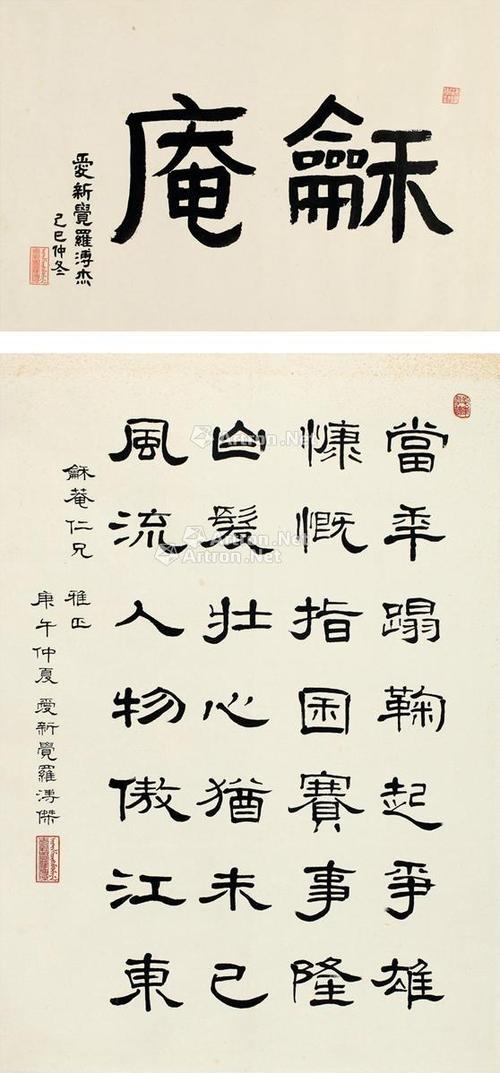 龢庵
愛新覺羅溥杰
己巳仲冬
當年蹋鞠起爭雄
慷慨指囷賽事隆
白髮壯心猶未已
風流人物傲江東
龢菴仁兄
雅正
庚午仲夏 愛新覺羅溥傑
Artron.Net
Artron.Net
Artron.Net
Artron.Net